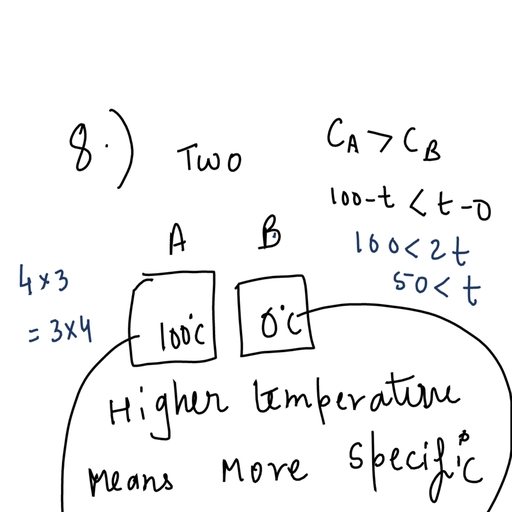 8.) Two
C_A > C_B
100-t < t-0
100 < 2t
50 < t
A B
4x3
= 3x4
100°C 0°C
Higher temperature
means more specific